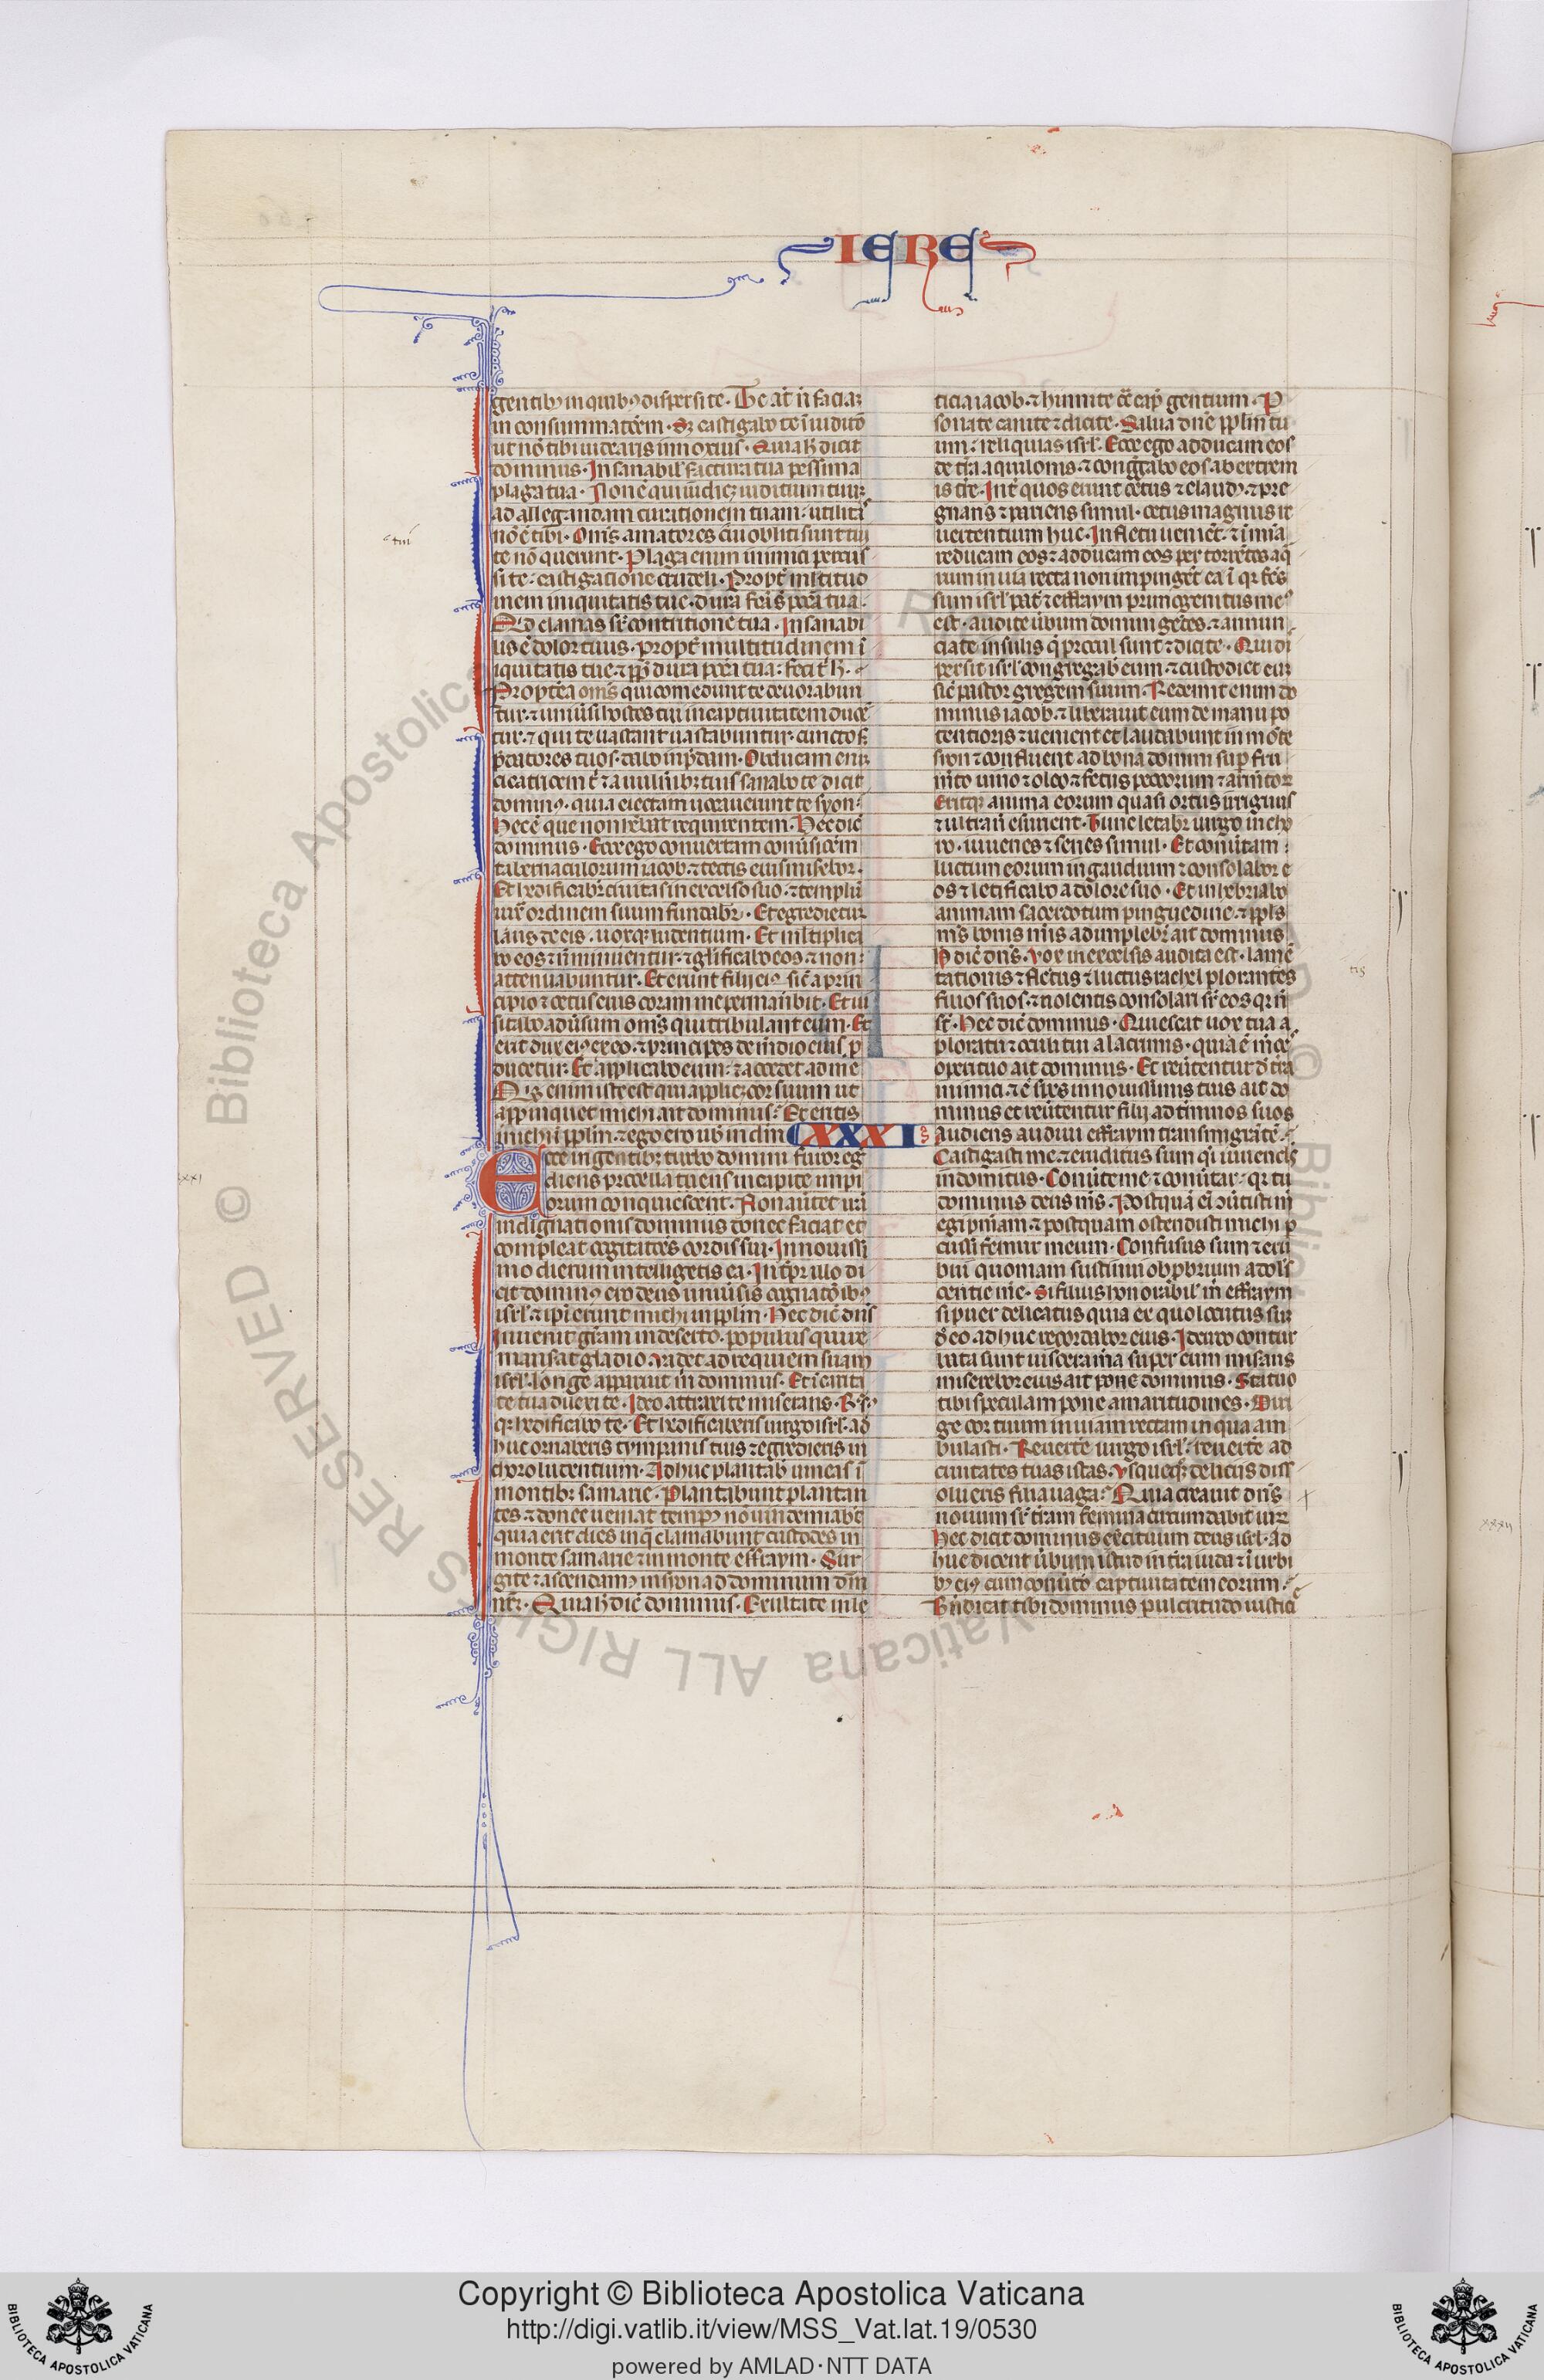 IERE
gentib; in quib; dispersi te. Te aut̃ ñ faciaz
in consummatõem. Sz castigabo te ĩ iuditio
ut nõ tibi uidearis innoxius. Quia h̃ dicit
dominus. Insanabil' fractura tua pessima
plaga tua. Non ẽ qui iudicz iuditium tuuz
ad allegandam curationem tuam. utilitas
nõ ẽ tibi. Om̃s amatores tui obliti sunt tui
te nõ querunt. Plaga enim inimici percus
si te: castigatione crudeli. Propt̃ multitudi
nem iniquitatis tue. dura
Qid clamas sr̃ contritione tua. Insanabi
lis ẽ dolor tuus. propt̃ multitudinem ĩ
iquitatis tue. feci t' h̃.
Propterea om̃s qui comedunt te deuorabun
tur. ⁊ uniũsi hostes tui in captiuitatem ducẽ
tur. ⁊ qui te uastant uastabuntur. cunctosqz
p̃datores tuos. dabo in p̃dam. Obducam eniz
cicatricem t' ⁊ a uulñibz tuis sanabo te dicit
domin;. quia eiectam uocauerunt te syon:
Hec ẽ que non h̃ebat requirentem. Hec dic̃
dominus. Ecce ego conuertam conũsionem
tabernaculorum iacob. ⁊ tectis eius miserebor.
Et hedificabr̃ ciuitas in excelso suo. ⁊ templũ
iux̃ ordinem suum fundabr̃. Et egredietur
laus de eis. uoxqz ludentium. Et mltiplica
bo eos ⁊ ñ minuentur. ⁊ gl'ificabo eos ⁊ non:
attenuabuntur. Et erunt filii ei; sic̃ a prin
cipio ⁊ cetus eius coram me permanebit. Et ui
sitabo adũsum om̃s qui tribulant eum. Et
erit dux ei; ex eo. ⁊ princeps de medio eius p̃
ducetur. Et applicabo eum. ⁊ accedet ad me
Qis enim iste est qui applicz cor suum ut
appinquet michi. ait dominus. Et eritis
michi ĩ pplm. ⁊ ego ero uob̃ in dm̃ XXXI
Ecce in gentibz turbo domini furor eg
diens procella ruens in capite impi
orum conquiescent. Non auertet irã
indignationis dominus donec faciat et
compleat cogitatões cordis sui. In nouissi
mo dierum intelligetis ea. In tp̃r illo di
cit domin; ero deus uniũsis cognatõib;
isrl'. ⁊ ipĩ erunt michi in pplm. Hec dic̃ dñs
Inuenit gr̃am in deserto. populus qui re
manserat gladio. uadet ad requiem suam
isrl'. longe apparuit m̃ dominus. Et ĩ cariti
te tua duexi te. Ideo attraxi te miserans. R;̃
qz hedificabo te. Et hedificaberis uirgo isrl'. ad
huc ornaberis tympanis tuis ⁊ egredieris in
choro ludentium. Adhuc plantab' uineas ĩ
montibz samarie. Plantabunt plantan
tes. ⁊ donec ueniat temp; nõ uindemiabũt
quia erit dies in q̃ clamabunt custodes in
monte samarie ⁊ in monte effraym. Sur
gite ⁊ ascendam; in syon ad dominum dm̃
nr̃z. Quia h̃ dic̃ dominus. Exultate in le
ticia iacob. ⁊ hinnite cõ cap; gentium. P
sonate canite ⁊ dicite. Salua dñe pplm tu
um: reliquias isrl'. Ecce ego adducam eos
de tr̃a aquilonis. ⁊ congrgabo eos ab extrem
is tr̃e. Int̃ quos erunt cecus ⁊ claud;. ⁊ pre
gnans ⁊ pariens simul. cetus magnus re
uertentium huc. In fletu uenient. ⁊ ĩ mĩa
reducam eos: ⁊ adducam eos per torrẽtes aq̃
rum in uia recta non impingẽt ea ĩ qz fc̃s
sum isrl' pat̃ ⁊ effraym primogenitus me;
est. audite ũbum domini gẽtes. ⁊ annun
ciate insulis q̃ procul sunt ⁊ dicite. Qui di
persit isrl' congregabit eum. ⁊ custodiet euz
sic̃ pastor gregem suum. Redemit enim do
minus iacob. ⁊ liberauit eum de manu po
tentioris ⁊ uenient et laudabunt in mõte
sion ⁊ confluent ad bona domini sup̃ fru
m̃to uino ⁊ oleo. ⁊ fetus pecorum ⁊ armtor
Eritqz anima eorum quasi ortus iriguus
⁊ ultra ñ esurient. Tunc letabr̃ uirgo in cho
ro. iuuenes ⁊ senes simul. Et conũtam
luctum eorum in gaudium ⁊ consolabor e
os ⁊ letificabo a dolore suo. Et inhebriabo
animam sacerdotum pinguedine. ⁊ ppls
m̃s bonis m̃is adimplebr̃ ait dominus
H dic̃ dñs. Vox in excelsis audita est. lamẽ
tationis ⁊ fletus ⁊ luctus rachel plorantes
filios suos. ⁊ nolentis consolari sr̃ eos qz ñ
st̃. Hec dic̃ dominus. Quiescat uox tua a
ploratu ⁊ oculi tui a lacrimis. quia ẽ m̃ces
operi tuo ait dominus. Et reũtentur d̃ tr̃a
inimici. ⁊ ẽ spes in nouissimis tuis ait do
minus et reũtentur filij ad terminos suos
audiens audiui effraym transmigrãtẽ.
Castigasti me ⁊ eruditus sum q̃i iuuencls
indomitus. Conũte me ⁊ conũtar. qz tu
dominus deus m̃s. Postquã eĩ conũtisti m̃
egi pniam. ⁊ postquam ostendisti michi p
cussi femur meum. Confusus sum ⁊ eru
bui quoniam sustinui obprbrium adol's
centie m̃e. Si filius honorabil' m̃ effraym
si puer delicatus quia ex quo locutus suz
d̃ eo. adhuc recordabor eius. Idcirco contur
bata sunt uiscera mĩa super eum miserans
miserebor eius ait pone dominus. Statuo
tibi speculam pone amaritudines. Diri
ge cor tuum in uiam rectam in qua am
bulasti. Reuerte uirgo isrl'. reuerte ad
ciuitates tuas istas. Vsquequo deliciis diss
olueris filia uaga. Quia creauit dñs
nouum sr̃ tr̃am femina circumdabit uirz
Hec dicit dominus exẽcituum deus isrl'. ad
huc dicent ũbum istud in tr̃a iuda ⁊ ĩ urbi
b; ei; cum conũto captiuitatem eorum.
Bñdicat tibi dominus pulcritudo iustici
xxxi
tis
xxxii
Copyright © Biblioteca Apostolica Vaticana
http://digi.vatlib.it/view/MSS_Vat.lat.19/0530
powered by AMLAD·NTT DATA
BIBLIOTECA APOSTOLICA VATICANA
BIBLIOTECA APOSTOLICA VATICANA
Biblioteca Apostolica Vaticana ALL RIGHTS RESERVED ©